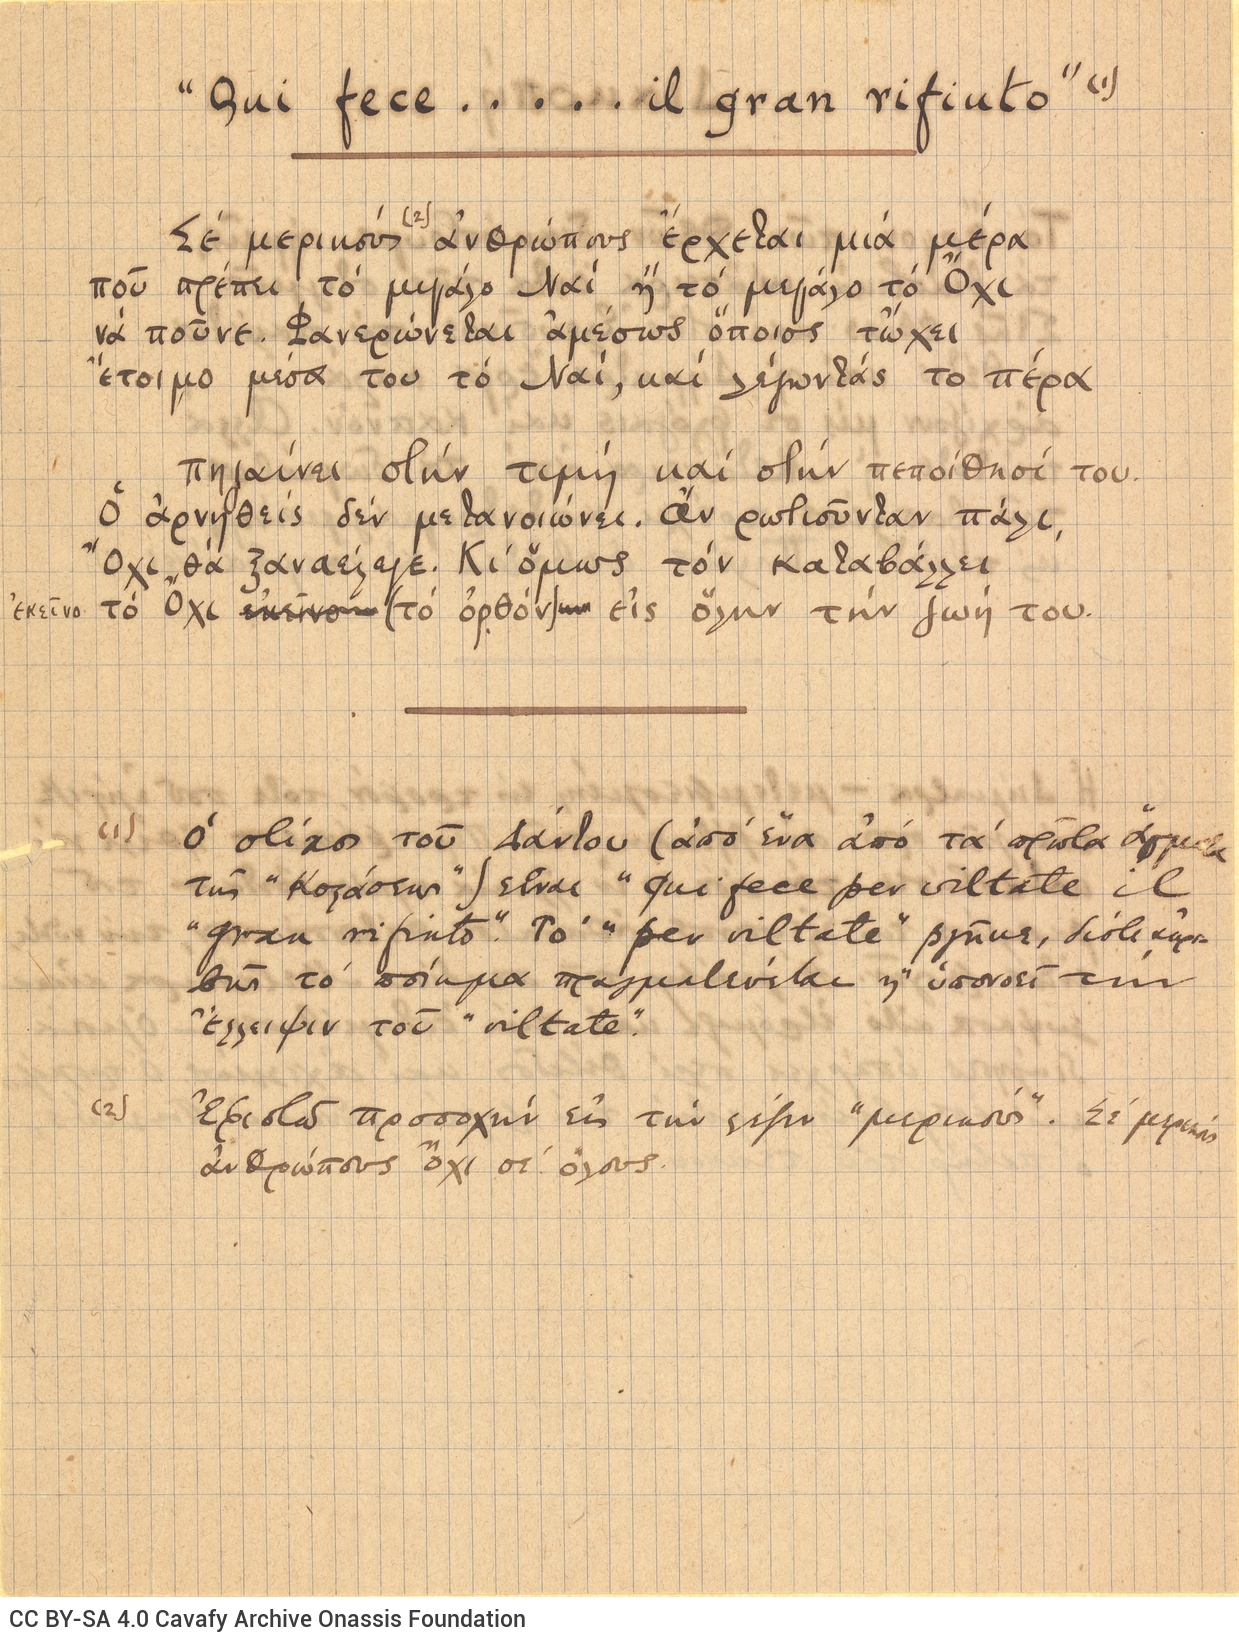 "Qui fece . . . . . il gran rifiuto" (1)
Σέ μερικούς (2) ἀνθρώπους ἔρχεται μιά μέρα
ποῦ πρέπει τό μεγάλο Ναί ἤ τό μεγάλο τό Ὄχι
νά ποῦνε. Φανερώνεται ἀμέσως ὅποιος τὤχει
ἕτοιμο μέσα του τό Ναί, καί λέγωντάς το πέρα
πηγαίνει στήν τιμή καί στήν πεποίθησί του.
Ὁ ἀρνηθείς δέν μετανοιώνει. Ἄν ρωτιοῦνταν πάλι,
Ὄχι θά ξαναέλεγε. Κι' ὅμως τόν καταβάλλει
ἐκεῖνο τό Ὄχι ἐκεῖνο (τό ὀρθόν) εἰς ὅλην τήν ζωή του.
(1) Ὁ στίχος τοῦ Δάντου (ἀπό ἕνα ἀπό τά πρῶτα ἄσματα
τῆς "Κολάσεως") εἶναι "Qui fece per viltate il
"gran rifiuto". Τό "per viltate" βγῆκε, διότι ἀκρι-
βῶς τό ποίημα πραγματεύεται ἤ ὑπονοεῖ τήν
ἔλλειψιν τοῦ "viltate".
(2) Ἐφιστῶ προσοχήν εἰς τήν λέξιν "μερικούς". Σέ μερικούς
ἀνθρώπους ὄχι σέ ὅλους.
CC BY-SA 4.0 Cavafy Archive Onassis Foundation